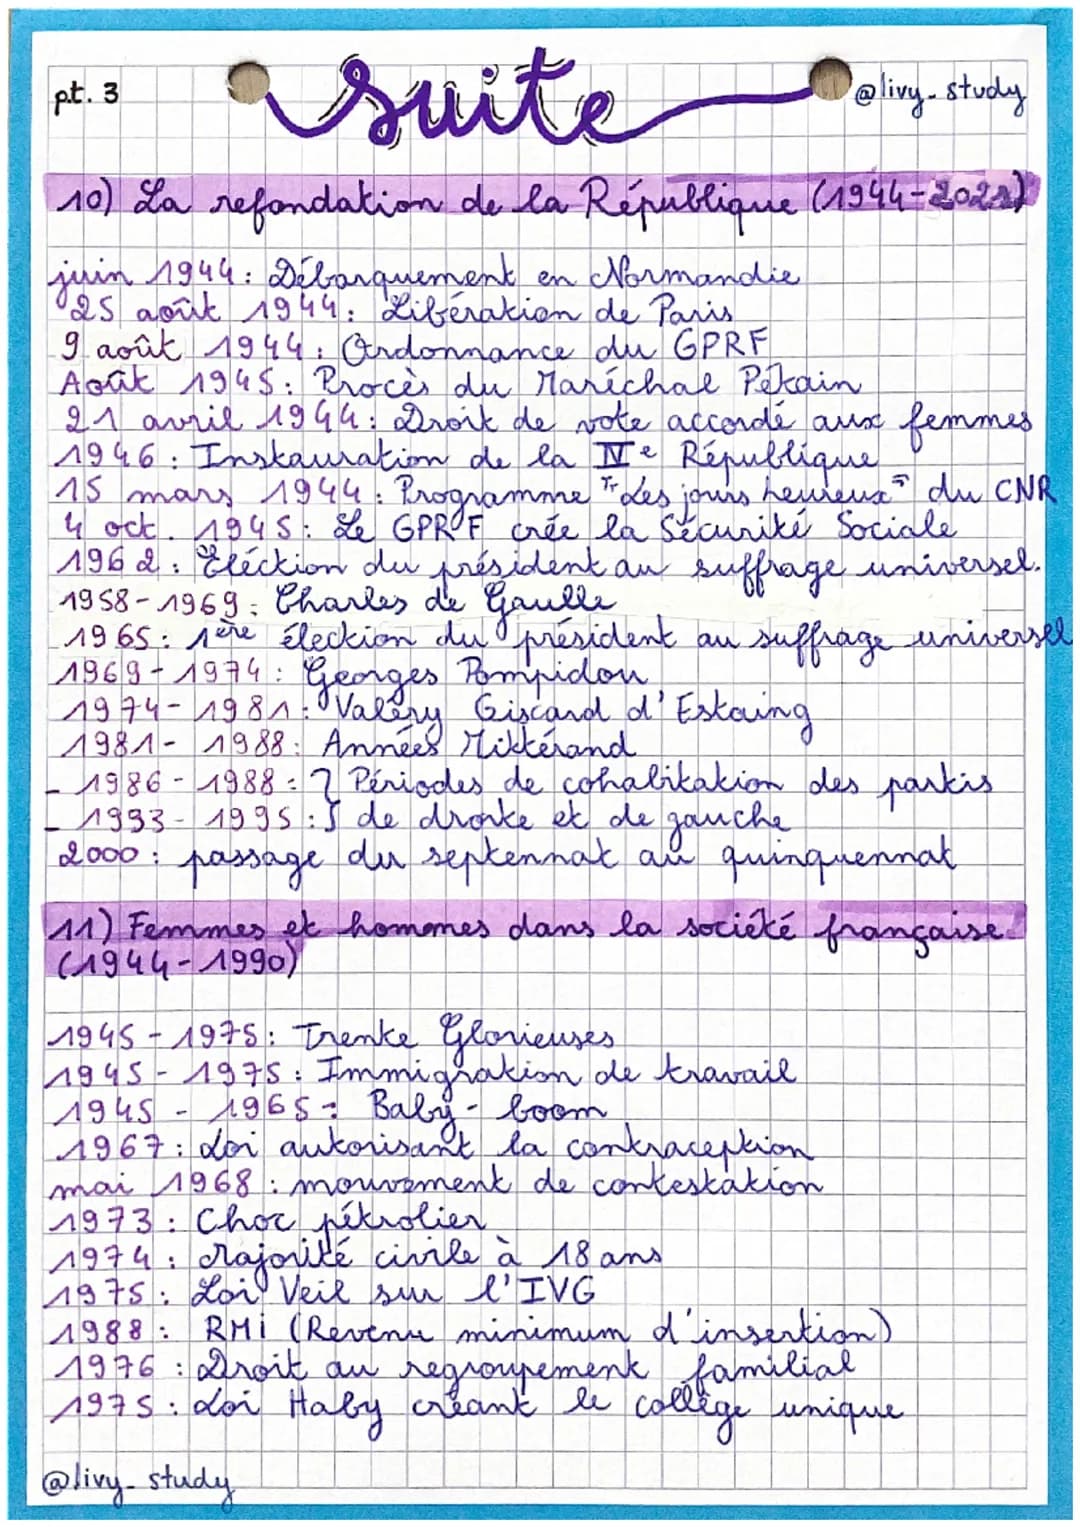 pt. 3
suite
@livy_study
10) La refondation de la République (1944-2022)
juin 1944 : Débarquement en Normandie
25 août 1944 : Libération de Paris
9 août 1944 : Ordonnance du GPRF
Août 1945 : Procès du Maréchal Pétain
21 avril 1944 : Droit de vote accordé aux femmes
1946 : Instauration de la IVe République
15 mars 1944 : Programme "Les jours heureux" du CNR
4 oct. 1945 : Le GPRF crée la Sécurité Sociale
1962 : Éléction du président au suffrage universel.
1958-1969 : Charles de Gaulle
1965 : 1ère élection du président au suffrage universel
1969-1974 : Georges Pompidou
1974-1981 : Valéry Giscard d'Estaing
1981-1988 : Années Mittérand
- 1986-1988 : } Périodes de cohabitation des partis
- 1993-1995 : } de droite et de gauche
2000 : passage du septennat au quinquennat
11) Femmes et hommes dans la société française
(1944-1990)
1945-1975 : Trente Glorieuses
1945-1975 : Immigration de travail
1945-1965 : Baby-boom
1967 : Loi autorisant la contraception
mai 1968 : mouvement de contestation
1973 : Choc pétrolier
1974 : Majorité civile à 18 ans
1975 : Loi Veil sur l'IVG
1988 : RMI (Revenu minimum d'insertion)
1976 : Droit au regroupement familial
1975 : Loi Haby créant le collège unique
@livy_study